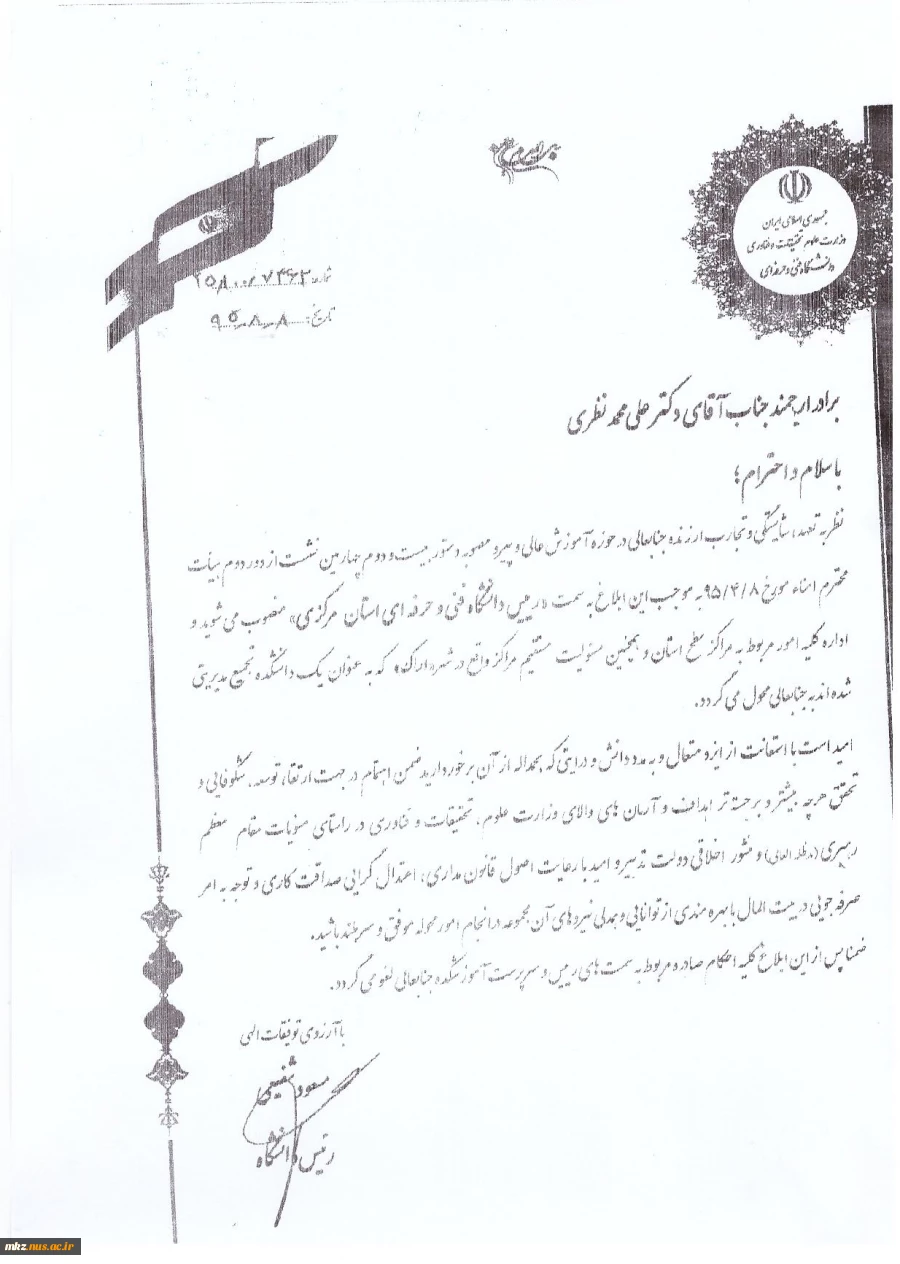 جمهوری اسلامی ایران
وزارت علوم تحقیقات و فناوری
دانشگاه فنی و حرفه‌ای
شماره:
تاریخ: ۹۵-۸-۸
برادر ارجمند جناب آقای دکتر علی محمد نظری
با سلام و احترام؛
نظر به تعهد، شایستگی و تجارب ارزنده جنابعالی در حوزه آموزش عالی و پیرو مصوبه دستور بیست و دوم چهارمین نشست از دور دوم هیأت
محترم امناء مورخ ۹۵/۴/۸ به موجب این ابلاغ به سمت «رییس دانشگاه فنی و حرفه ای استان مرکزی» منصوب می شوید و
اداره کلیه امور مربوط به مراکز سطح استان و همچنین مسؤلیت مستقیم مراکز واقع در شهر «اراک» که به عنوان یک دانشکده تجمیع مدیریتی
شده اند به جنابعالی محول می گردد.
امید است با استعانت از ایزد متعال و به مدد دانش و درایتی که بحمداله از آن برخوردارید ضمن اهتمام در جهت ارتقاء، توسعه، شکوفائی و
تحقق هرچه بیشتر و برجسته تر اهداف و آرمان های والای وزارت علوم، تحقیقات و فناوری در راستای منویات مقام معظم
رهبری (مدظله العالی) و منشور اخلاقی دولت تدبیر و امید با رعایت اصول قانون مداری، اعتدال گرایی صداقت کاری و توجه به امر
صرفه جویی در بیت المال با بهره مندی از توانایی و همدلی نیروهای آن مجموعه در انجام امور محوله موفق و سربلند باشید.
ضمنا پس از این ابلاغ کلیه احکام صادره مربوط به سمت های رییس و سرپرست آموزشکده جنابعالی لغو می گردد.
با آرزوی توفیقات الهی
مسعود شفیعی
رئیس دانشگاه
mkz.nus.ac.ir